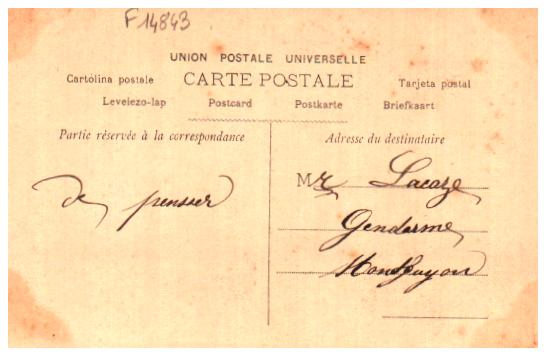 F 14843
UNION POSTALE UNIVERSELLE
Cartolina postale CARTE POSTALE Tarjeta postal
Levelezo-lap Postcard Postkarte Briefkaart
Partie réservée à la correspondance
de pensser
Adresse du destinataire
Mr Lacaze
Gendarme